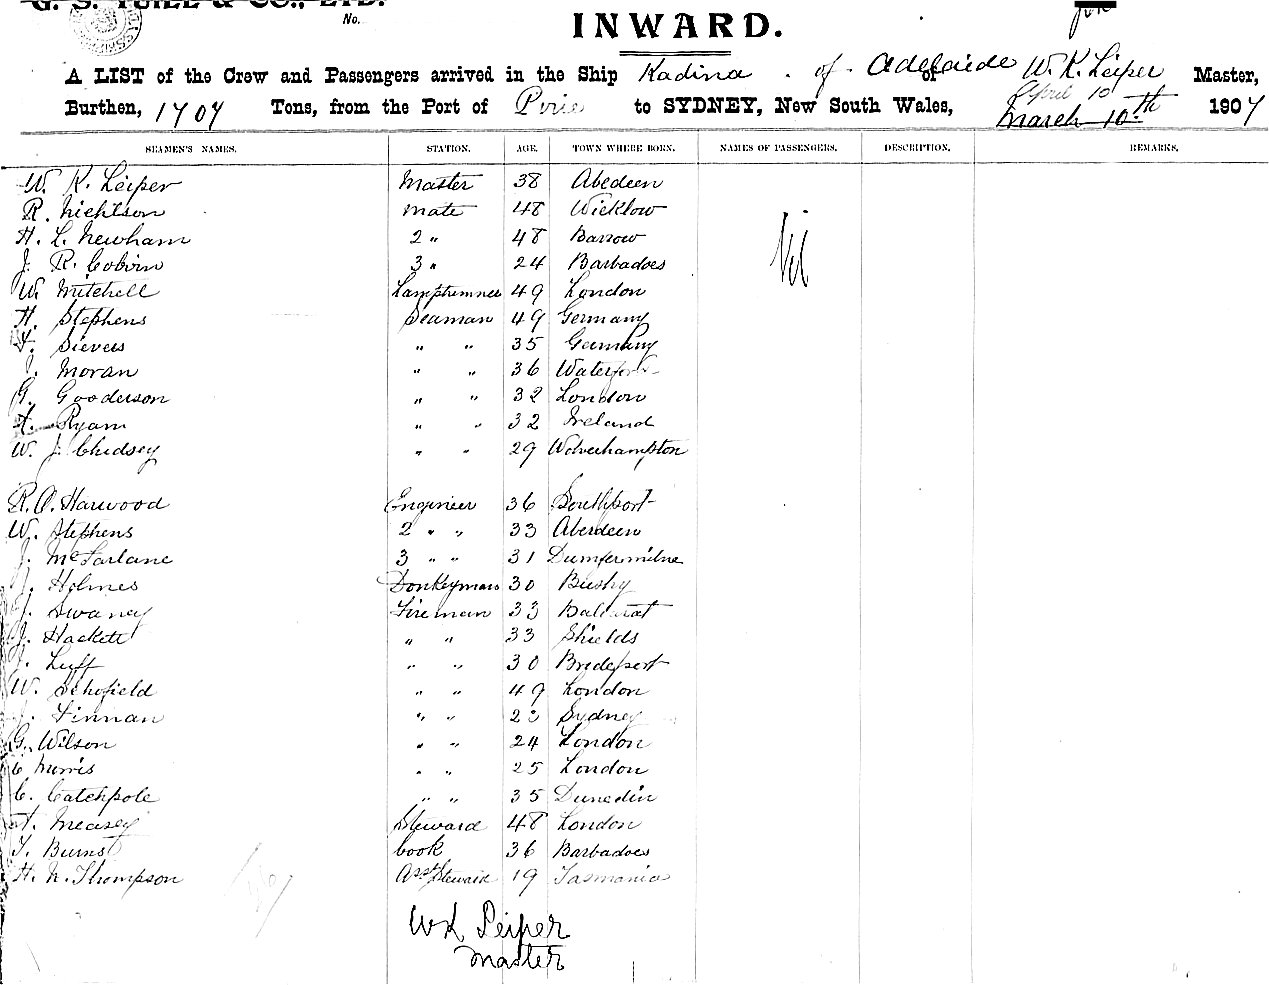 G. S. YUILL & CO., LTD.
No.
INWARD.
A LIST of the Crew and Passengers arrived in the Ship Kadina of Adelaide of W. K. Leiper Master,
April 10
Burthen, 1707 Tons, from the Port of Pirie to SYDNEY, New South Wales, March 10th 1907
SEAMEN'S NAMES. STATION. AGE. TOWN WHERE BORN. NAMES OF PASSENGERS. DESCRIPTION. REMARKS.
W. K. Leiper Master 38 Abedeen
R. Mate 48 Wicklow
H. L. Newham 2 " 48 Barrow
Nil
J. R. Colvin 3 " 24 Barbadoes
W. Mitchell Lamptrimmer 49 London
H. Stephens Seaman 49 Germany
F. Sievers " " 35 Germany
J. Moran " " 36 Waterford
G. Gooderson " " 32 London
Ryam " " 32 Ireland
W. J. Chidsey " " 29 Wolverhampton
R. A. Harwood Engineer 36 Southport
W. Stephens 2 " " 33 Aberdeen
J. McFarlane 3 " " 31 Dumfermilne
J. Holmes Donkeyman 30 Bushy
J. Swaney Fireman 33 Ballarat
J. Hackett " " 33 Shields
J. Luff " " 30 Brideport
W. Schofield " " 49 London
J. Finnan " " 23 Sydney
G. Wilson " " 24 London
C Morris " " 25 London
C. Catchpole " " 35 Dunedin
A. Measey Steward 48 London
T. Burns Cook 36 Barbadoes
H. N. Thompson Asst Steward 19 Tasmania
WK Leiper
Master